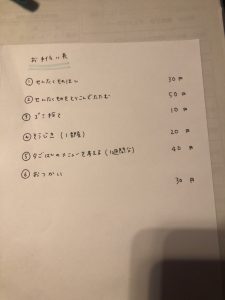 お手伝い表
① せんたくものほし 30円
② せんたくものをとりこんでたたむ 50円
③ ゴミ捨て 10円
④ そうじき (1部屋) 20円
⑤ 夕ごはんのメニューを考える (1週間分) 40円
⑥ おつかい 30円